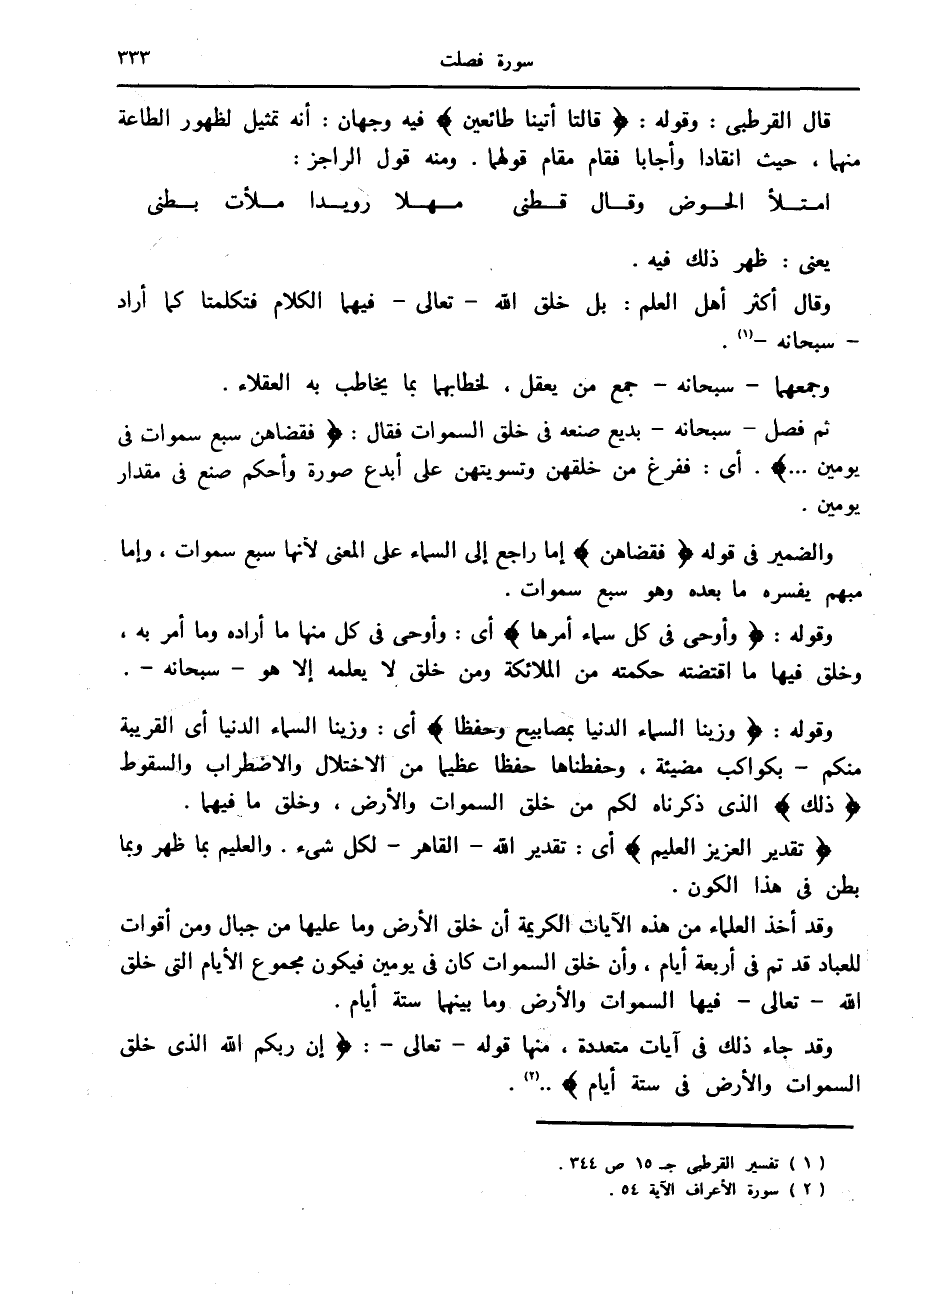 سورة فصلت ٣٣٣
قال القرطبى : وقوله : ﴿ قالتا أتينا طائعين ﴾ فيه وجهان : أنه تمثيل لظهور الطاعة
منهما ، حيث انقادا وأجابا فقام مقام قولهما . ومنه قول الراجز :
امتلأ الحوض وقال قطنى مهلا رويدا ملأت بطنى
يعنى : ظهر ذلك فيه .
وقال أكثر أهل العلم : بل خلق الله – تعالى – فيهما الكلام فتكلمتا كما أراد
– سبحانه –(١) .
وجمعهما – سبحانه – جمع من يعقل ، لخطابهما بما يخاطب به العقلاء .
ثم فصل – سبحانه – بديع صنعه فى خلق السموات فقال : ﴿ فقضاهن سبع سموات فى
يومين ...﴾ . أى : ففرغ من خلقهن وتسويتهن على أبدع صورة وأحكم صنع فى مقدار
يومين .
والضمير فى قوله ﴿ فقضاهن ﴾ إما راجع إلى السماء على المعنى لأنها سبع سموات ، وإما
مبهم يفسره ما بعده وهو سبع سموات .
وقوله : ﴿ وأوحى فى كل سماء أمرها ﴾ أى : وأوحى فى كل منها ما أراده وما أمر به ،
وخلق فيها ما اقتضته حكمته من الملائكة ومن خلق لا يعلمه إلا هو – سبحانه – .
وقوله : ﴿ وزينا السماء الدنيا بمصابيح وحفظا ﴾ أى : وزينا السماء الدنيا أى القريبة
منكم – بكواكب مضيئة ، وحفظناها حفظا عظيما من الاختلال والاضطراب والسقوط
﴿ ذلك ﴾ الذى ذكرناه لكم من خلق السموات والأرض ، وخلق ما فيهما .
﴿ تقدير العزيز العليم ﴾ أى : تقدير الله – القاهر – لكل شىء . والعليم بما ظهر وبما
بطن فى هذا الكون .
وقد أخذ العلماء من هذه الآيات الكريمة أن خلق الأرض وما عليها من جبال ومن أقوات
للعباد قد تم فى أربعة أيام ، وأن خلق السموات كان فى يومين فيكون مجموع الأيام التى خلق
الله – تعالى – فيها السموات والأرض وما بينهما ستة أيام .
وقد جاء ذلك فى آيات متعددة ، منها قوله – تعالى – : ﴿ إن ربكم الله الذى خلق
السموات والأرض فى ستة أيام ﴾ ..(٢) .
( ١ ) تفسير القرطبى جـ ١٥ ص ٣٤٤ .
( ٢ ) سورة الأعراف الآية ٥٤ .